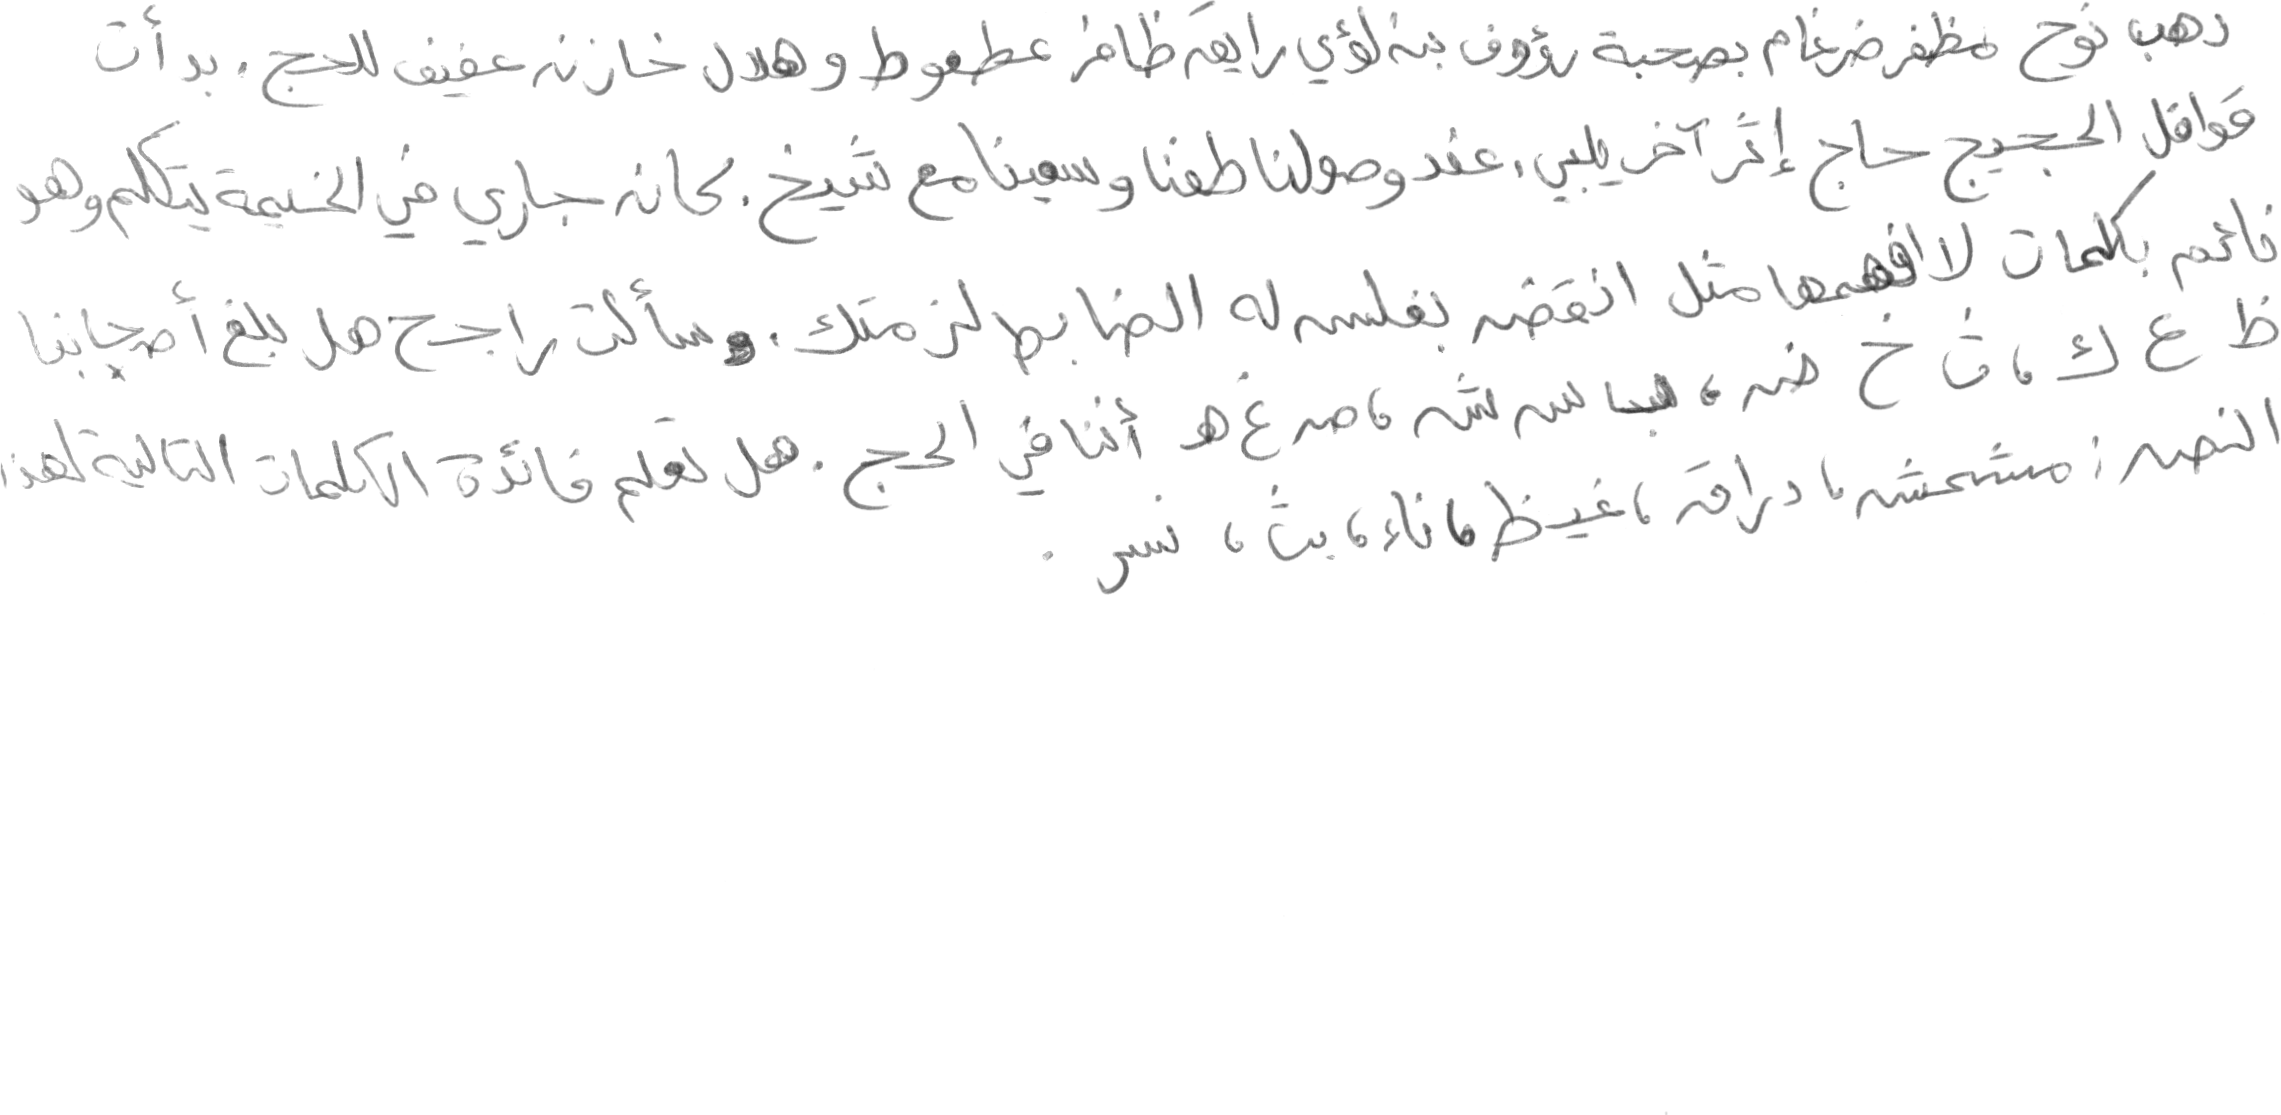 ذهب نوح مظفر ضرغام بصحبة رؤوف بن لؤي رايق ظافر عطعوط و هلال خازن عفيف للحج . بدأت
قوافل الحجيج حاج إثر آخر يلبي ، عند وصولنا طفنا و سعينا مع شيخ . كان جاري في الخيمة يتكلم وهو
نائم بكلمات لا افهمها مثل انقض بغلس له الضابط لزمتك . وسألت راجح هل بلغ أصحابنا
ظ ع ك ، ث خ ض ، س ش ، ص غ هـ أننا في الحج . هل تعلم فائدة الكلمات التالية لهذا
النص : مشمش ، دراق ، غيظ ، ناء ، بث ، نسر .